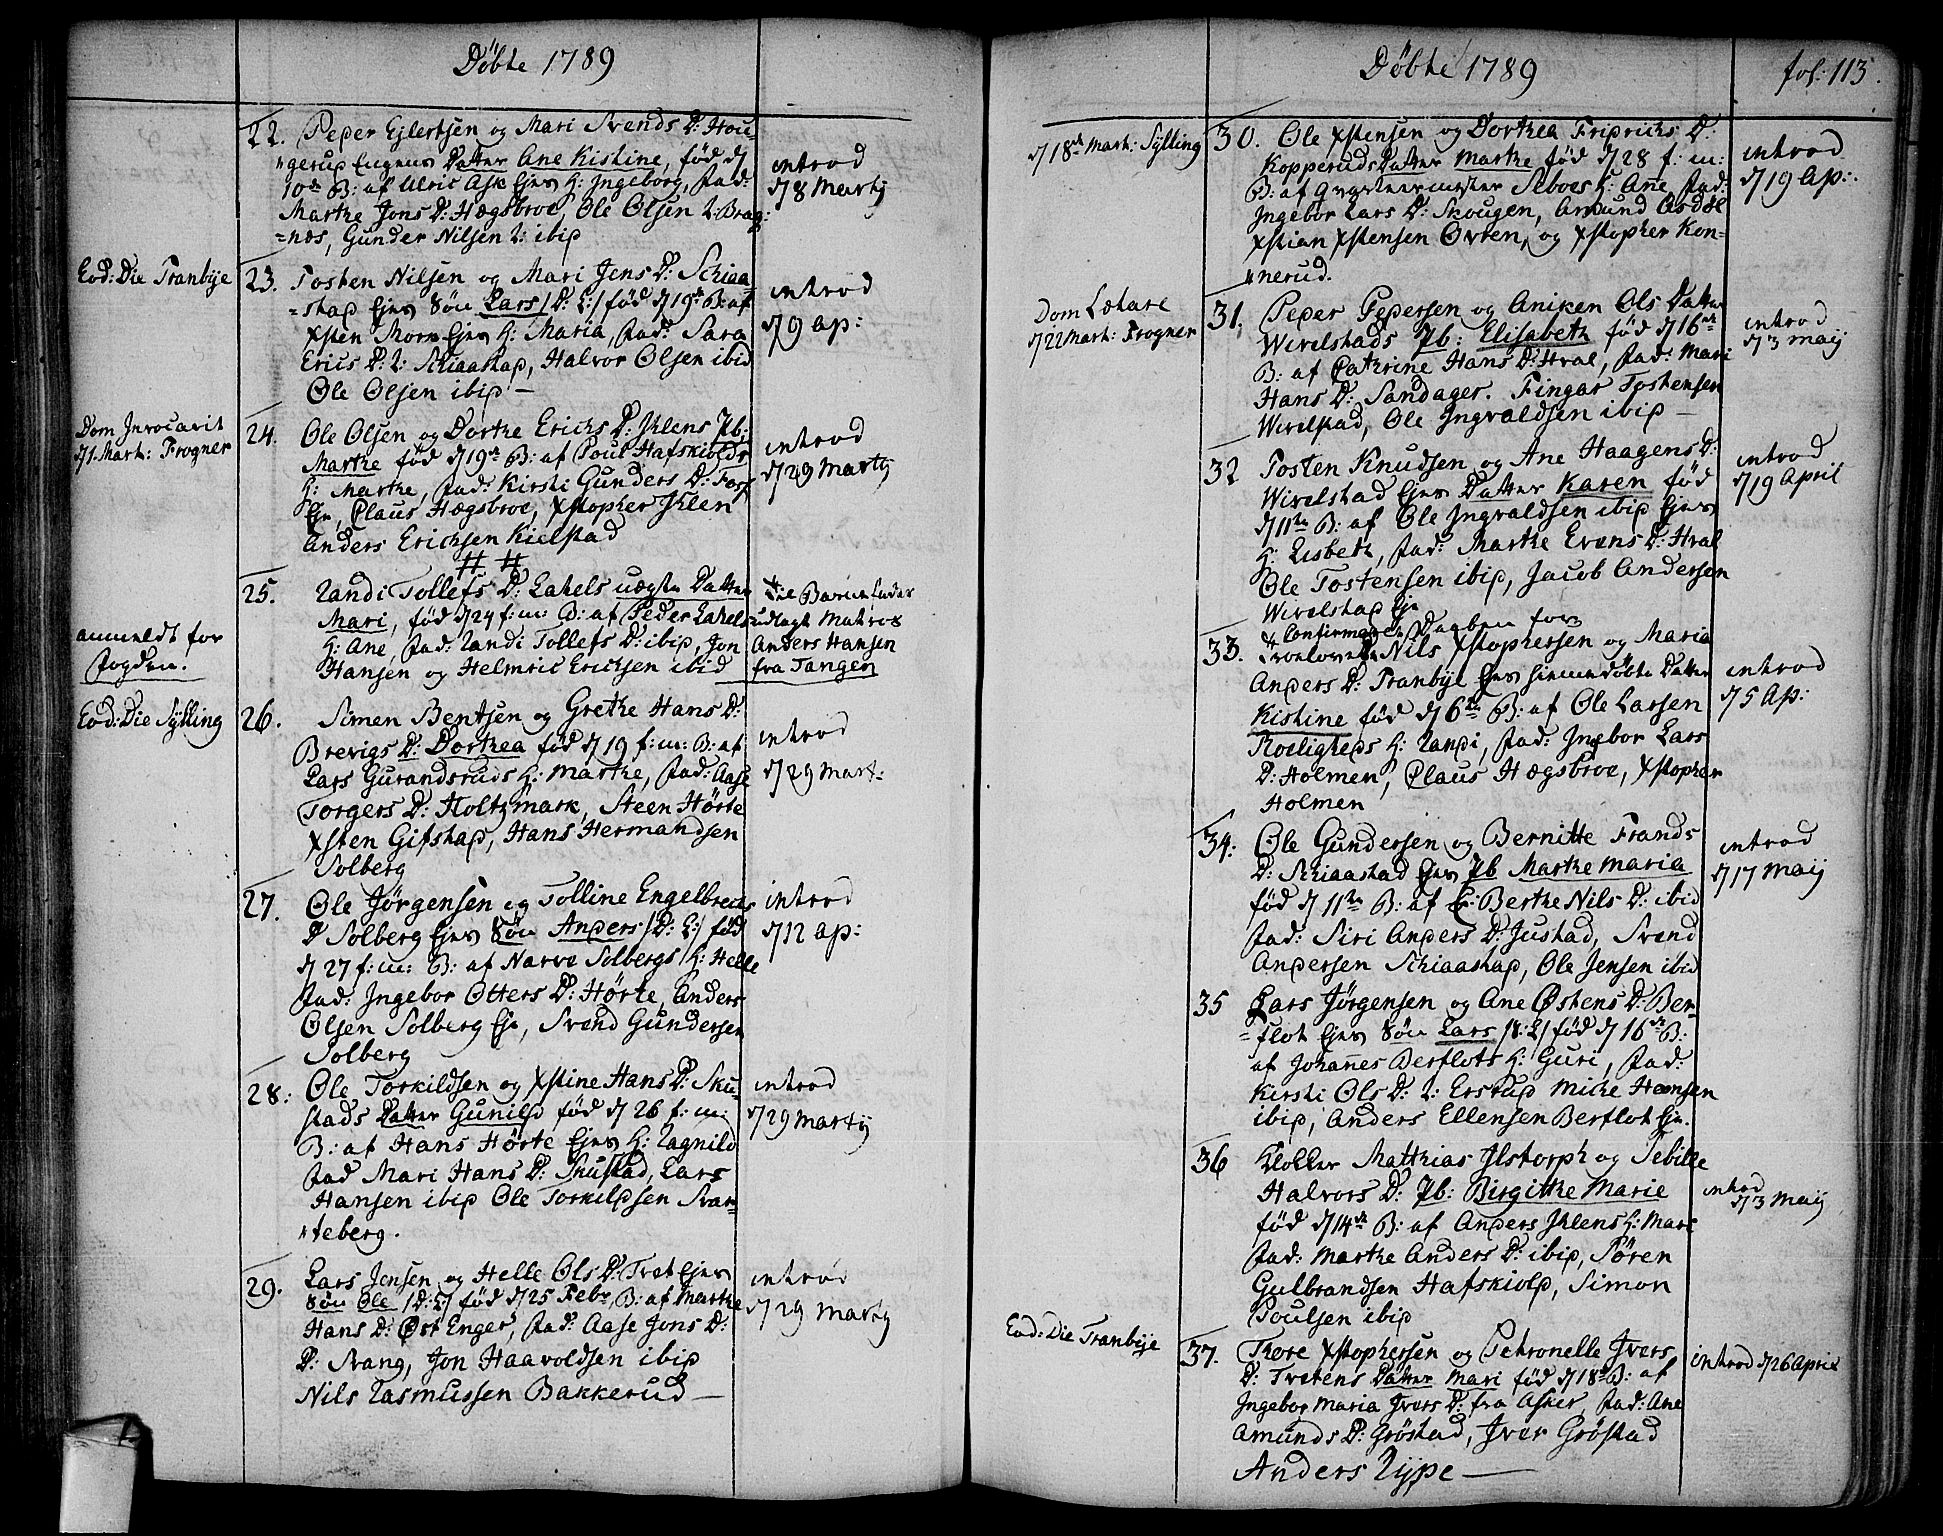 Döbte 1789
22. Peder Ejlertsen og Mari Svends D: Hou-
gerup Eugens Datter Ane Kistine, fød d
10de B: af Ulric Ask Ejes H: Ingeborg, fad:
Marthe Jons D: Hægsbroe, Ole Olsen i: Brag:
=næs, Gunder Nilsen i: ibid
introd
d 8 Martij
Eod: Die Tranbÿe
23. Tosten Nilsen og Mari Jens D: Schiaa
=stad Ejes Søn Lars /: D: L:/ fød d 19de B: af
Xsten Morn Ejes H: Maria, fad: Sara
Erics D: i: Schiaastad, Halvor Olsen ibid
Ole Olsen ibid —
introd
d 9 Ap:
Dom Invocavit
d 1. Mart: Frogner
24. Ole Olsen og Dorthe Erichs D: Ihlens Pb:
Marthe fød d 19de B: af Poul Hafskiolds
H: Marthe, fad: Kirsti Gunders D: Foss
Eje, Claus Hægsbroe, Xstopher Ihlen
Anders Erichsen Kielstad
introd
d 29 Martij
anmeldt for
fogden.
25. Randi Tollefs D: Lahels uægte Datter
Mari, fød d 24 f: m: B: af Peder Lahels
H: Ane, fad: Randi Tollefs D: ibid, Jon
Hansen og Helmric Erichsen ibid
til Barnefader
udlagt Matros
Anders Hansen
fra Tangen
Eod: Die Sylling
26. Simen Bentsen og Grethe Hans D:
Brevigs D: Dorthea fød d 19 f: m: B: af
Lars Gurandsruds H: Marthe, fad: Aase
Torgers D: Holtzmark, Steen Hörte
Xsten Gifstad, Hans Hermandsen
Solberg
introd
d 29 Mart:
27. Ole Jörgensen og Tolline Engelbrects
D Solberg Ejes Søn Anders /: D: L:/ fød
d 27 f: m: B: af Narve Solbergs H: Helle
fad: Ingebor Otters D: Hörte, Anders
Olsen Solberg Eje, Svend Gundersen
Solberg
introd
d 12 Ap:
28: Ole Torkildsen og Xstine Hans D: Sku-
stads Datter Gunild fød d 26 f: m:
B: af Hans Hörte Ejes H: Ragnild
fad Mari Hans D: Skustad, Lars
Hansen ibid Ole Torkildsen Svar-
teberg.
introd
d 29 Martij
29. Lars Jensen og Helle Ols D: Tvet Ejes
Søn Ole /: D: L:/ fød d 25 Febr, B: af Marthe
Hans D: Øst Enger, fad: Aase Jons D:
D: Svang, Jon Haavoldsen ibid
Nils Rasmussen Bakkerud —
introd
d 29 Martij
Döbte 1789
fol: 113.
d 18de Mart: Sylling
30. Ole Xstensen og Dorthea Fridrichs D:
Kopperuds Datter Marthe fød d 28 f: m:
B: af Qvarteermester Seboes H: Ane, fad:
Ingebor Lars D: Skougen, Amund Asdøl
Xstian Xstensen Ovren, og Xstopher Kon-
nerud.
introd
d 19 Ap:
Dom Lætare
d 22 Mart: Frogner
31. Peder Pedersen og Aniken Ols Datter
Wivelstads Pb: Elisabeth fød d 16de
B: af Cathrine Hans D: Hval, fad: Mari
Hans D: Sandager. Fingar Tostensen
Wivelstad, Ole Ingvaldsen ibid —
introd
d 3 Maij
32 Tosten Knudsen og Ane Haagens D:
Wivelstad Ejes Datter Karen fød
d 11te B: af Ole Ingvaldsen ibid Ejes
H: Lisbeth, fad: Marthe Evens D: Hval
Ole Tostensen ibid, Jacob Andersen
Wivelstad Eje
introd
d 19 April
Confirmeret Daaben for
33. Trolovede Nils Xstophersen og Maria
Anders D: Tranbÿe Ejes hiemmedøbte Datter
Kistine fød d 6te B: af Ole Larsen
Roeligheds H: Randi, fad: Ingebor Lars
D: Holmen, Claus Hægsbroe, Xstopher
Holmen
introd
d 5 Ap:
34: Ole Gundersen og Bernitte Frands
D: Schiaastad Ejes Pb Marthe Maria
fød d 11te B: af Berthe Nils D: ibid
fad: Siri Anders D: Justad, Svend
Andersen Schiaastad, Ole Jensen ibid
introd
d 17 Maij
35 Lars Jörgensen og Ane Østens D: Ber-
=flot Ejes Søn Lars /: S: L:/ fød d 16de B:
af Johannes Berflots H: Guri, fad:
Kirsti Ols D: i: Erstup Miche Hansen
ibid, Anders Ellensen Berflot Eje.
36 Klokker Matthias Ilstorph og Sebille
Halvors D: Pb: Birgitthe Marie
fød d 14de B: af Anders Ihlens H: Mari
fad: Marthe Anders D: ibid, Sören
Gulbrandsen Hafskiold, Simon
Poulsen ibid
introd
d 3 Maij
Eod: Die Tranbÿe
37. Thore Xstophersen og Petronelle Ivers
D: Tvetens Datter Mari fød d 18de B: af
Ingebor Maria Ivers D: fra Asker, fad: Ane
Amunds D: Gröstad, Iver Gröstad
Anders Rype —
introd d 26 April